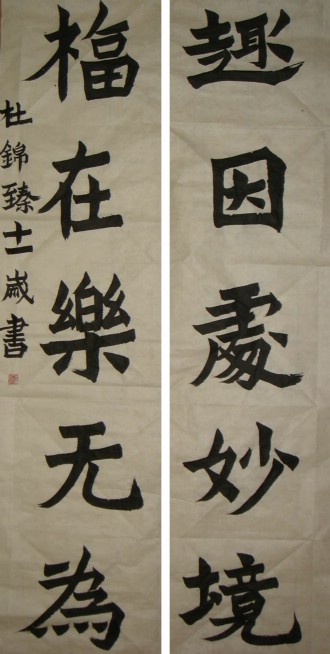 趣因處妙境
楅在樂无為
杜錦臻十一歲書